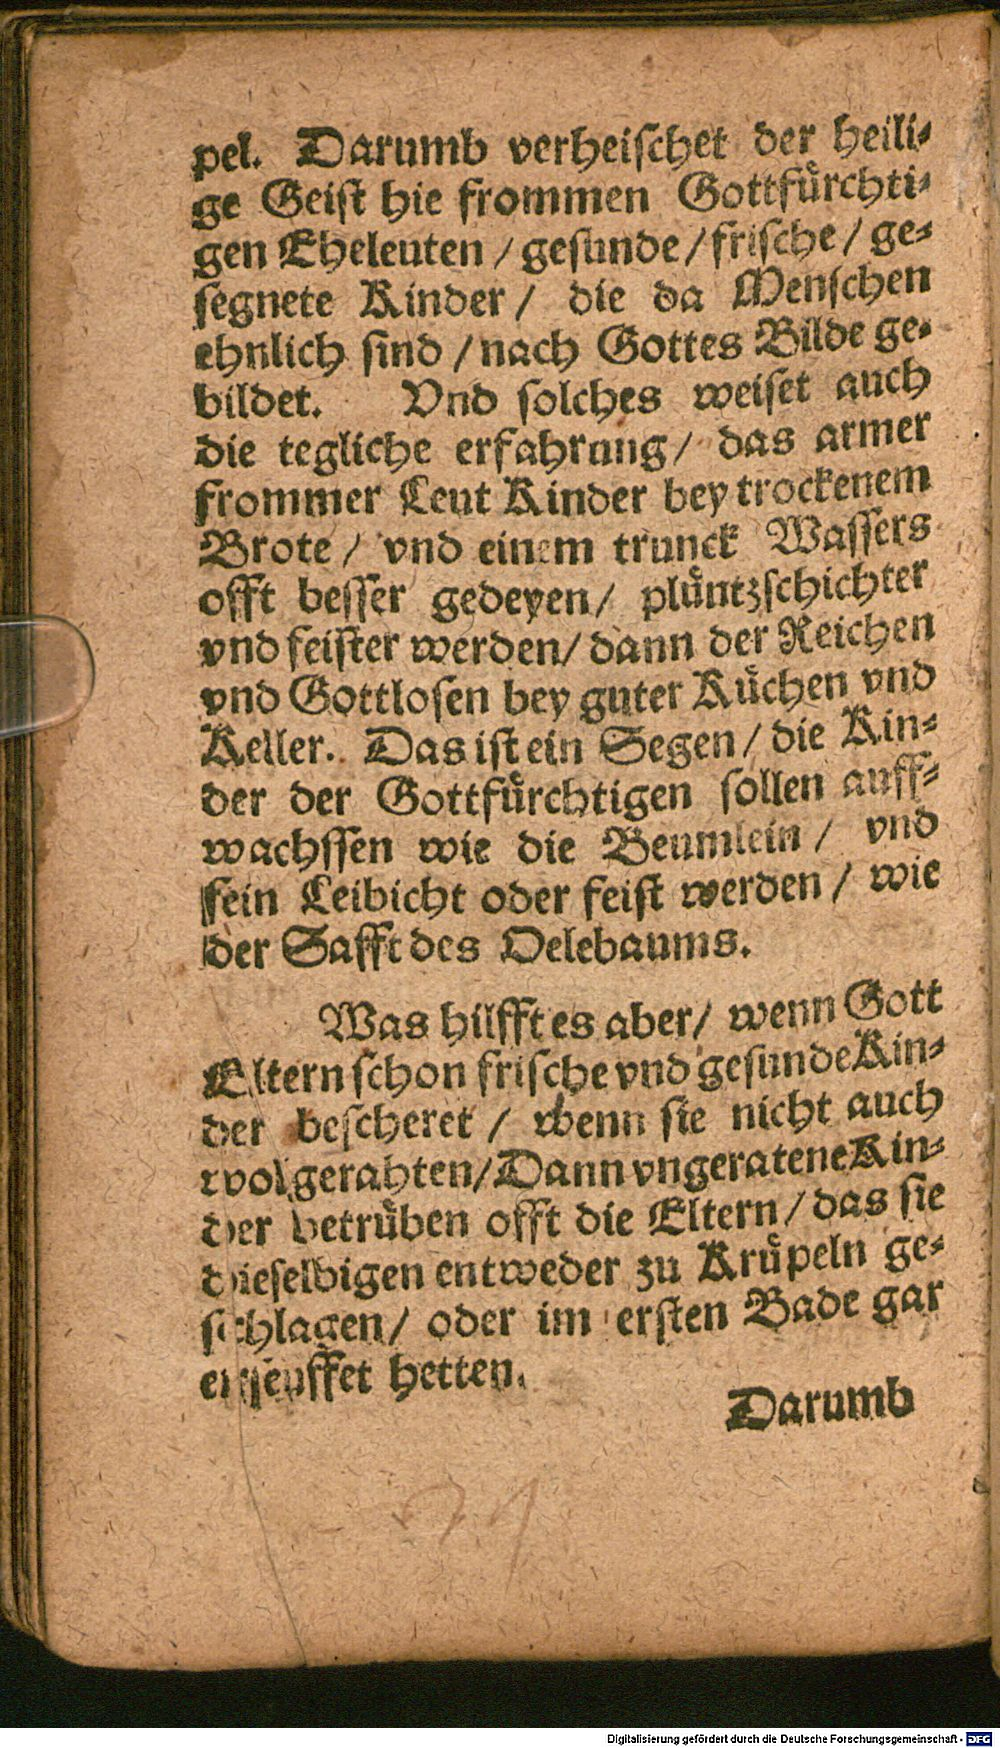 pel. Darumb verheischet der heili-
ge Geist hie frommen Gottfürchti-
gen Eheleuten / gesunde / frische / ge-
segnete Kinder / die da Menschen
ehnlich sind / nach Gottes Bilde ge-
bildet. Vnd solches weiset auch
die tegliche erfahrung / das armer
frommer Leut Kinder bey trockenem
Brote / vnd einem trunck Wassers
offt besser gedeyen / plüntzschichter
vnd feister werden / dann der Reichen
vnd Gottlosen bey guter Küchen vnd
Keller. Das ist ein Segen / die Kin-
der der Gottfürchtigen sollen auff-
wachssen wie die Beumlein / vnd
fein Leibicht oder feist werden / wie
der Safft des Oelebaums.
Was hilfft es aber / wenn Gott
Eltern schon frische vnd gesunde Kin-
der bescheret / wenn sie nicht auch
wol gerahten / Dann vngeratene Kin-
der betrüben offt die Eltern / das sie
dieselbigen entweder zu Krüpeln ge-
schlagen / oder im ersten Bade gar
erseuffet hetten.
Darumb
Digitalisierung gefördert durch die Deutsche Forschungsgemeinschaft - DFG